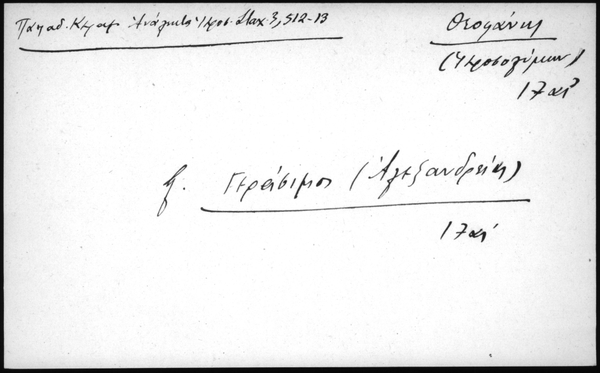 Παπαδ. Κεραμ. Ἀνάλεκτα Ἱεροσ. Σταχ. 3, 512-13
Θεοφάνης
(Ἱεροσολύμων)
17 αἰ
Γεράσιμος (Ἀλεξανδρείας)
17 αἰ